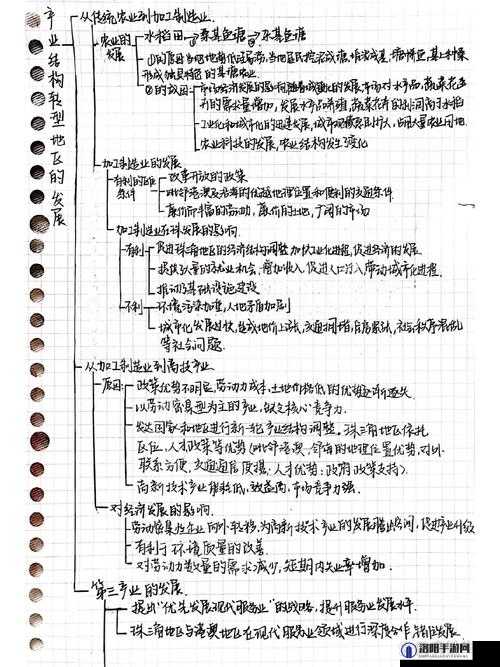 产业结构转型地区的发展
从传统农业到加工制造业
农业的发展
水稻田→桑基鱼塘→蔗基鱼塘
①的原因:当地地势低
形成独具特色的基塘农业
②的成因:市场经济发展的
的需求量增加,发展水产品养殖,蔬菜花卉的
工业化和城市化的迅速发展,城市规模急剧扩大,占用大量农业用地
农业科技的发展,农业结构发生变化
加工制造业的发展
有利的区位条件
改革开放的政策
毗邻港澳及沿海的优越地理位置和便利的交通条件
廉价而丰富的劳动力,廉价的土地,广阔的市场
加工制造业在珠发展的影响
有利
促进珠三角地区的经济结构调整,加快工业化进程,促进经济的发展
提供大量的就业机会,增加收入,促进人口迁入,带动城市化进程
推动基础设施建设
不利
环境污染加重,人地矛盾加剧
城市化发展过快,造成地价上涨,交通拥挤,住房紧张,社会秩序混乱
等社会问题.
从加工制造业到高技产业
原因:
政策优势不明显,劳动力成本,土地价格低的优势逐渐丧失
以劳动密集型为主的产业,缺乏核心竞争力.
发达国家和地区进行新一轮产业结构调整,珠三角地区依托
区位,人才政策等优势(毗邻港澳,的地理位置优势,对外
联系方便,交通通信便捷;人才优势;政府政策支持)
高新技术产业能耗低,效益高,市场竞争力强.
对经济发展的影响
劳动密集的企业向外转移,为高新技术产业的发展腾出空间,促进产业升级
有利于环境质量的改善.
对劳动力数量的需求减少,短期内失业率增加.
第三产业的发展
提出"优先发展现代服务业"的战略,提升服务业发展水平.
珠三角地区与港澳地区在现代服务业领域进行深度合作,错位发展.
洛阳手游网